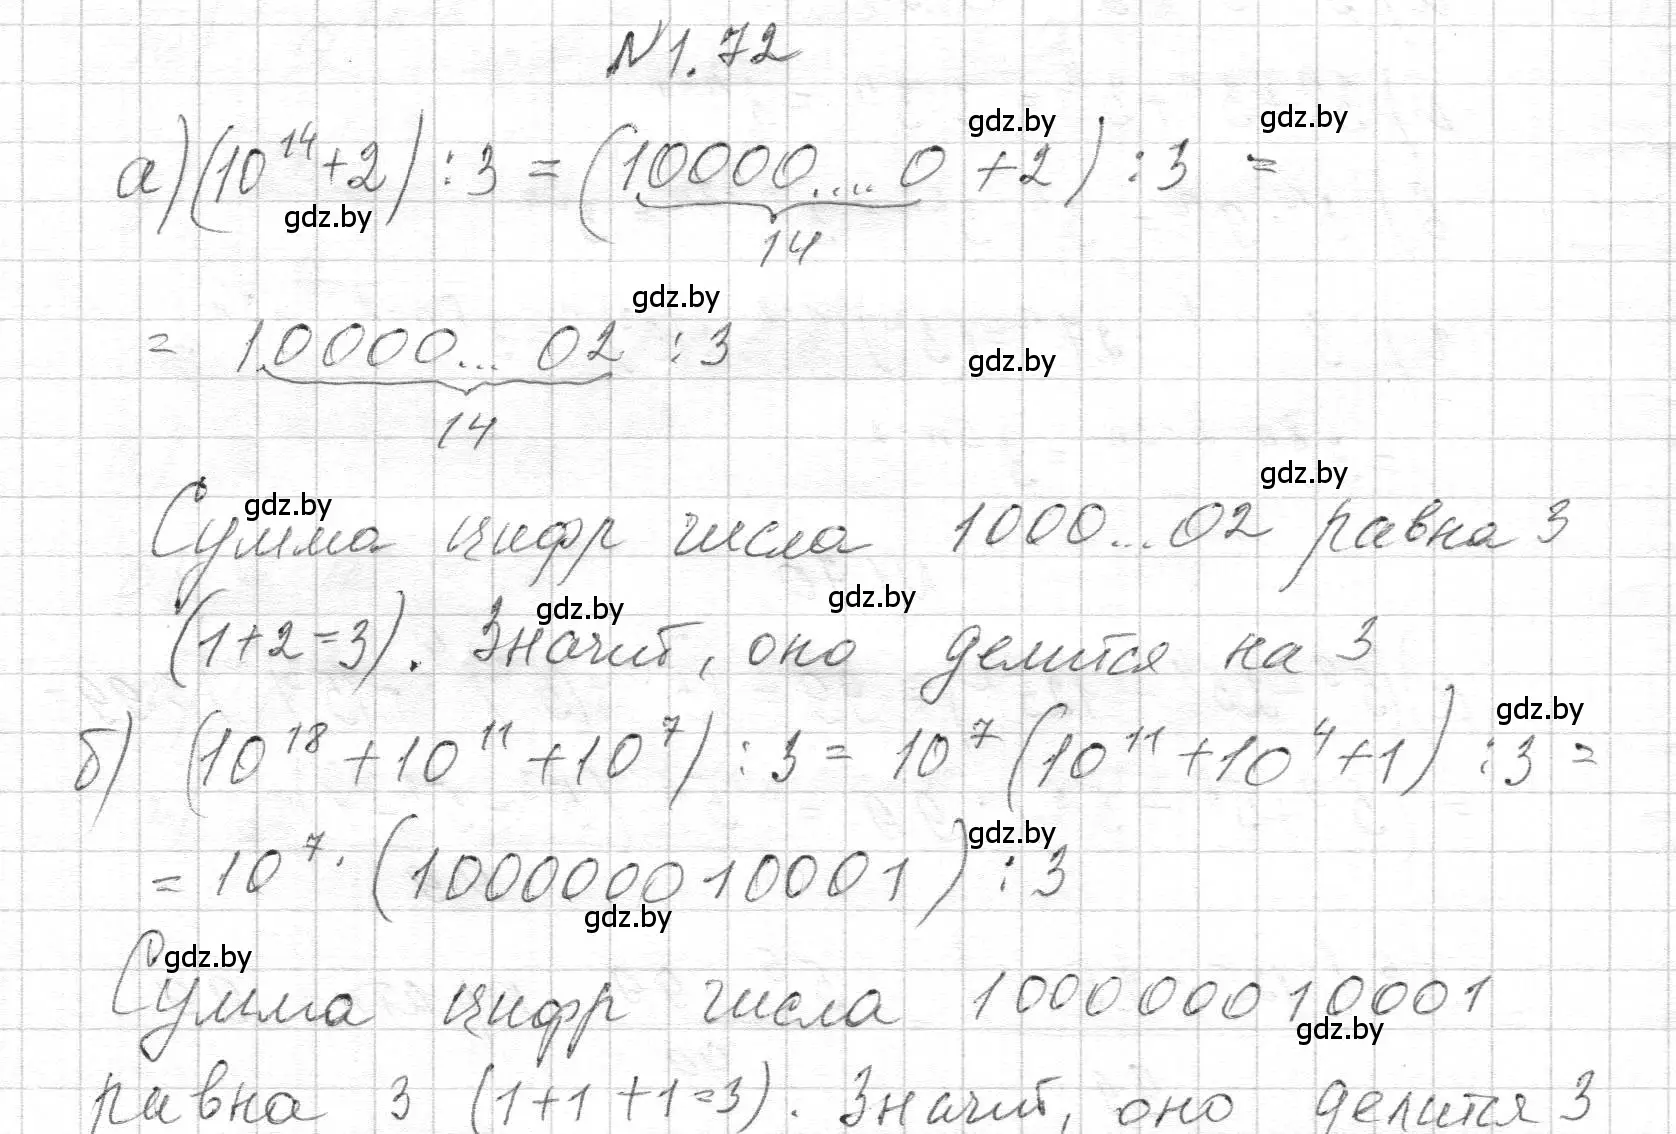 №1.72
gdz.by gdz.by
а) (10^14 + 2) : 3 = (10000....0 + 2) : 3 =
gdz.by
14
gdz.by
= 10000... 02 : 3
gdz.by
14
gdz.by
gdz.by
Сумма цифр числа 1000...02 равна 3
gdz.by gdz.by
(1+2=3). Значит, оно делится на 3
gdz.by
б) (10^18 + 10^11 + 10^7) : 3 = 10^7 (10^11 + 10^4 + 1) : 3 =
gdz.by
= 10^7 · (100000010001) : 3
gdz.by
gdz.by
Сумма цифр числа 100000010001
gdz.by
равна 3 (1+1+1=3). Значит, оно делится 3